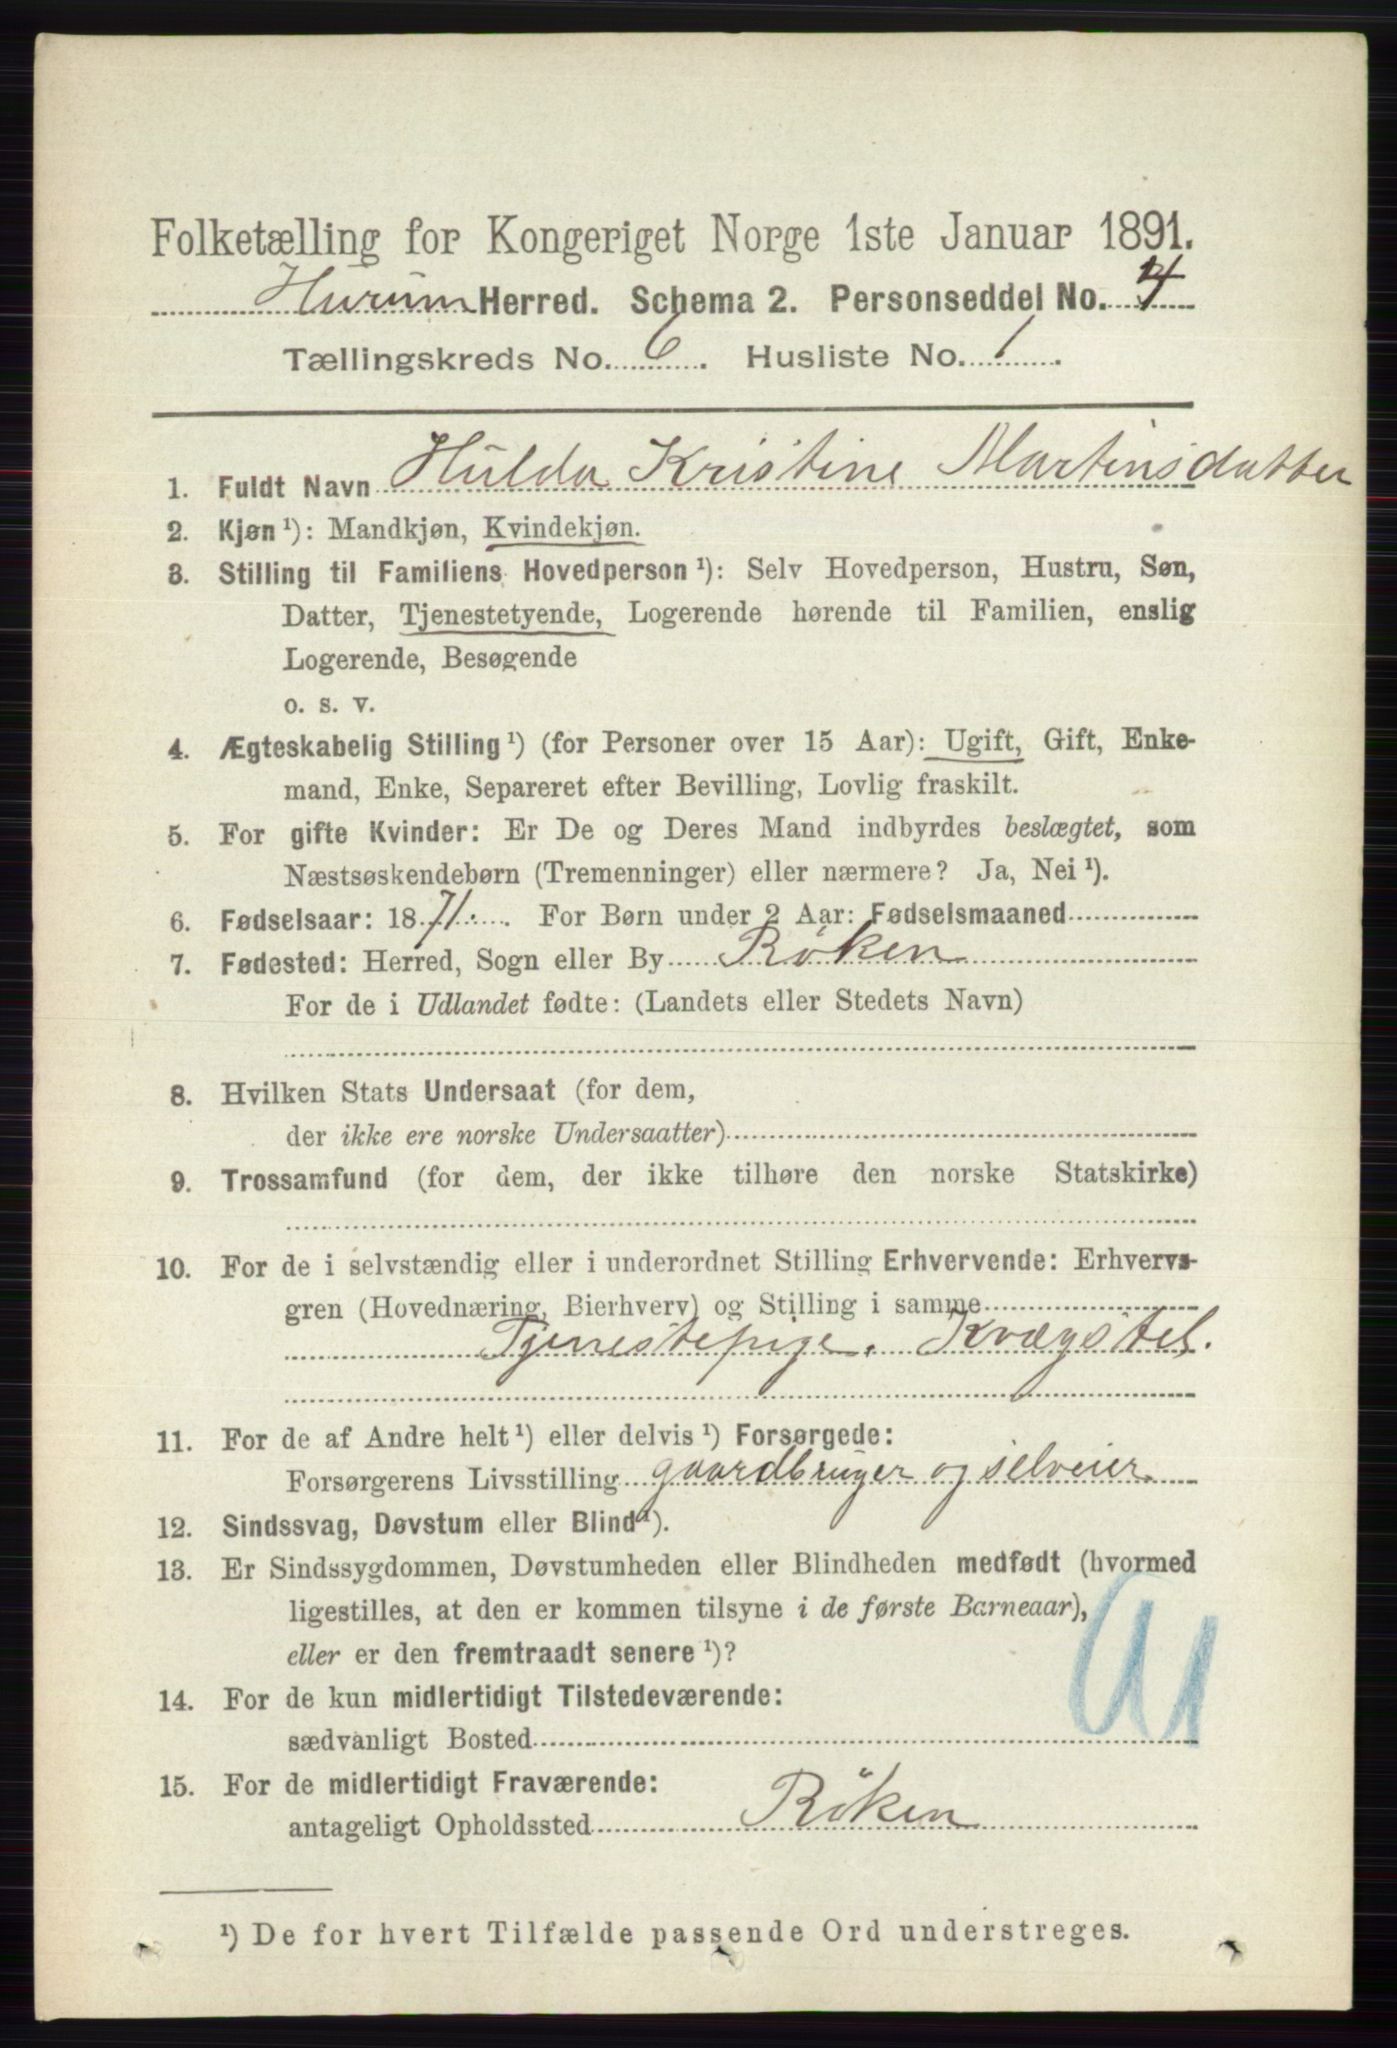 Folketælling for Kongeriget Norge 1ste Januar 1891.
Hurum Herred. Schema 2. Personseddel No. 4
Tællingskreds No. 6. Husliste No. 1.
1. Fuldt Navn Hulda Kristine Martinsdatter
2. Kjøn ¹): Mandkjøn, Kvindekjøn.
3. Stilling til Familiens Hovedperson ¹): Selv Hovedperson, Hustru, Søn,
Datter, Tjenestetyende, Logerende hørende til Familien, enslig
Logerende, Besøgende
o. s. v.
4. Ægteskabelig Stilling ¹) (for Personer over 15 Aar): Ugift, Gift, Enke-
mand, Enke, Separeret efter Bevilling, Lovlig fraskilt.
5. For gifte Kvinder: Er De og Deres Mand indbyrdes beslægtet, som
Næstsøskendebørn (Tremenninger) eller nærmere? Ja, Nei ¹).
6. Fødselsaar: 1871. For Børn under 2 Aar: Fødselsmaaned
7. Fødested: Herred, Sogn eller By Röken
For de i Udlandet fødte: (Landets eller Stedets Navn)
8. Hvilken Stats Undersaat (for dem,
der ikke ere norske Undersaatter)
9. Trossamfund (for dem, der ikke tilhøre den norske Statskirke)
10. For de i selvstændig eller i underordnet Stilling Erhvervende: Erhvervs-
gren (Hovednæring, Bierhverv) og Stilling i samme
Tjenestepige. Kvægstel.
11. For de af Andre helt ¹) eller delvis ¹) Forsørgede:
Forsørgerens Livsstilling gaardbruger og selveier.
12. Sindssvag, Døvstum eller Blind ¹).
13. Er Sindssygdommen, Døvstumheden eller Blindheden medfødt (hvormed
ligestilles, at den er kommen tilsyne i de første Barneaar),
eller er den fremtraadt senere ¹)?
14. For de kun midlertidigt Tilstedeværende:
sædvanligt Bosted
15. For de midlertidigt Fraværende:
antageligt Opholdssted Röken
¹) De for hvert Tilfælde passende Ord understreges.